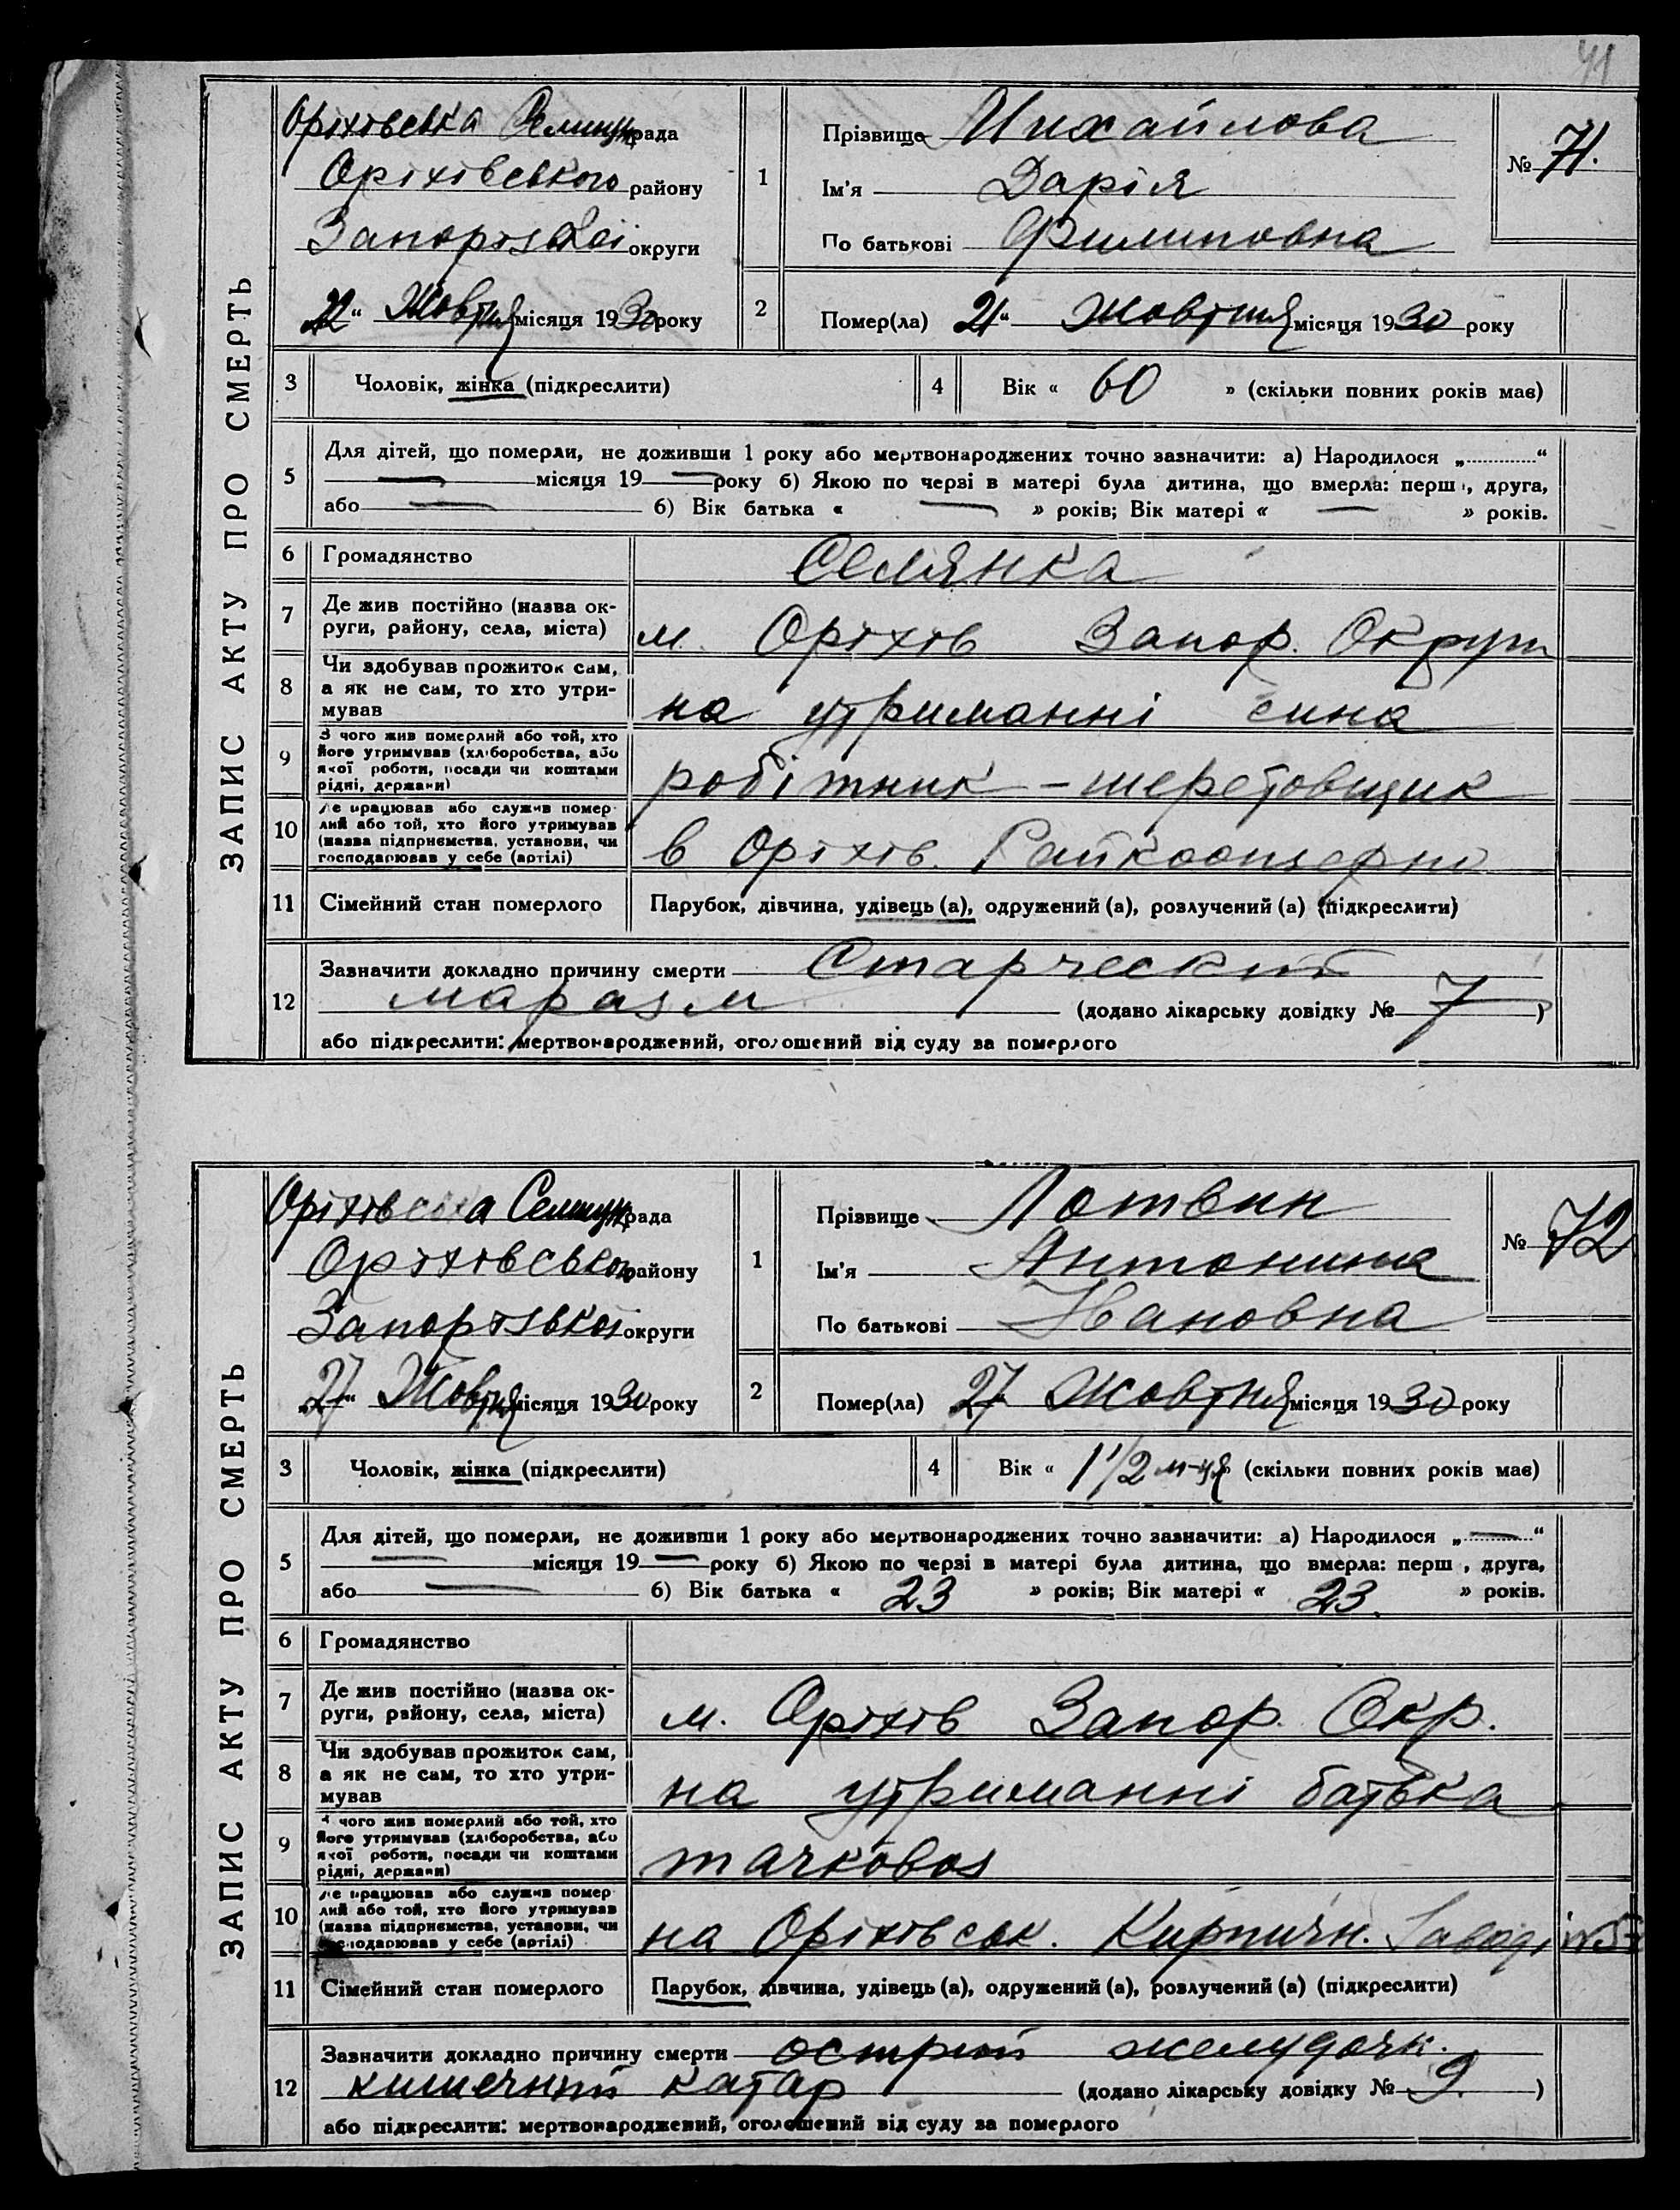 41
ЗАПИС АКТУ ПРО СМЕРТЬ
Оріхівська Селищн рада
Оріхівського району
Запорізької округи
22 “ Жовтня місяця 1930 року
1
Прізвище Михайлова
Ім’я Дарія
По батькові Филиповна
№ 71.
2
Помер(ла) 21 “ Жовтня місяця 1930 року
3 Чоловік, жінка (підкреслити)
4 Вік « 60 » (скільки повних років має)
5 Для дітей, що померли, не доживши 1 року або мертвонароджених точно зазначити: а) Народилося „ “
— місяця 19 — року б) Якою по черзі в матері була дитина, що вмерла: перш , друга,
або — б) Вік батька « — » років; Вік матері « — » років.
6 Громадянство Селянка
7 Де жив постійно (назва ок-
руги, району, села, міста) м. Оріхів Запор. Округи
8 Чи здобував прожиток сам,
а як не сам, то хто утри-
мував на утриманні сина
9 З чого жив померлий або той, хто
його утримував (хліборобства, або
якої роботи, посади чи коштами
рідні, держави) робітник – шеретовщик
10 Де працював або служив помер
лий або той, хто його утримував
(назва підприємства, установи, чи
господарював у себе (артілі) в Оріхів. Райкоопзерно
11 Сімейний стан померлого Парубок, дівчина, удівець (а), одружений (а), розлучений (а) (підкреслити)
12 Зазначити докладно причину смерти Старческий
маразм (додано лікарську довідку № 7 )
або підкреслити: мертвонароджений, оголошений від суду за померлого
ЗАПИС АКТУ ПРО СМЕРТЬ
Оріхівська Селищн рада
Оріхівського району
Запорізької округи
27 “ Жовтня місяця 1930 року
1
Прізвище Лотвин
Ім’я Антонина
По батькові Ивановна
№ 72
2
Помер(ла) 27 Жовтня місяця 1930 року
3 Чоловік, жінка (підкреслити)
4 Вік « 1 1/2 м-ця » (скільки повних років має)
5 Для дітей, що померли, не доживши 1 року або мертвонароджених точно зазначити: а) Народилося „ — “
— місяця 19 — року б) Якою по черзі в матері була дитина, що вмерла: перш , друга,
або — б) Вік батька « 23 » років; Вік матері « 23. » років.
6 Громадянство
7 Де жив постійно (назва ок-
руги, району, села, міста) м. Оріхів Запор. Окр.
8 Чи здобував прожиток сам,
а як не сам, то хто утри-
мував на утриманні батька
9 З чого жив померлий або той, хто
його утримував (хліборобства, або
якої роботи, посади чи коштами
рідні, держави) тачковоз
10 Де працював або служив помер
лий або той, хто його утримував
(назва підприємства, установи, чи
господарював у себе (артілі) на Оріхівськ. Кирпичн. Заводі
11 Сімейний стан померлого Парубок, дівчина, удівець (а), одружений (а), розлучений (а) (підкреслити)
12 Зазначити докладно причину смерти острый желудочн.
кишечный катар (додано лікарську довідку № 9. )
або підкреслити: мертвонароджений, оголошений від суду за померлого